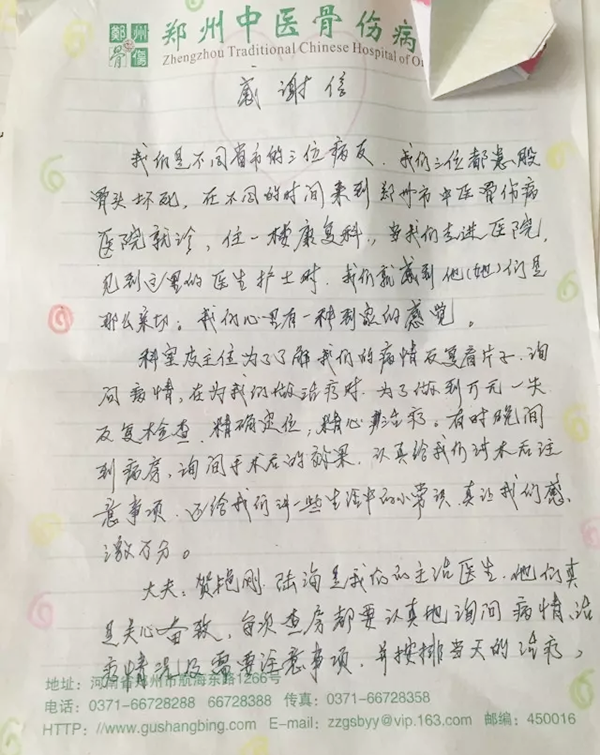 鄭州
骨傷
郑州中医骨伤病
Zhengzhou Traditional Chinese Hospital of O
感谢信
我们是不同省市的三位病友，我们三位都患股
骨头坏死，在不同的时间来到郑州市中医骨伤病
医院就诊，住一楼康复科，当我们走进医院，
见到这里的医生护士时，我们就感到他(她)们是
那么亲切。我们心里有一种到家的感觉。
科室皮主任为了了解我们的病情反复看片子，询
问病情，在为我们做治疗时，为了做到万无一失
反复检查，精确定位，精心治疗。有时晚间
到病房，询问手术后的效果，认真给我们讲术后注
意事项，还给我们讲一些生活中的小常识，真让我们感
激万分。
大夫：贺艳刚，陆海是我们的主治医生，他们真
是关心备致，每次查房都要认真地询问病情，治
疗情况及需要注意事项，并按排当天的治疗，
地址：河南省郑州市航海东路1266号
电话：0371-66728288 66728388 传真：0371-66728358
HTTP://www.gushangbing.com E-mail：zzgsbyy@vip.163.com 邮编：450016